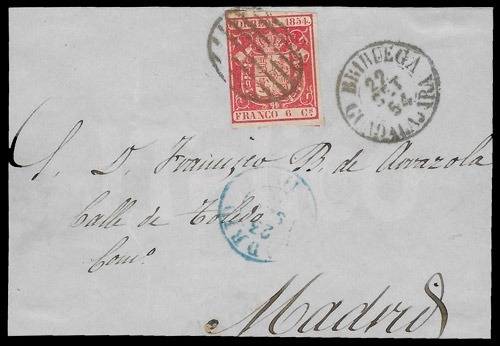 CORREOS 1854.
FRANCO 6 Cs.
BRIHUEGA
22
54
GUADALAJARA
S. D. Francisco B. de Arrazola
Calle de Toledo
Como.
23
Madrid